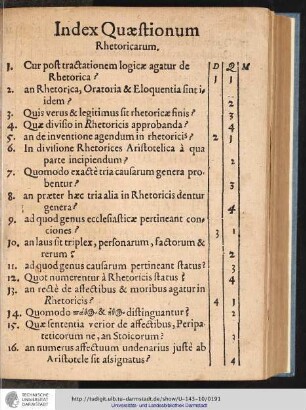 Index Quæstionum
Rhetoricarum.
D Q M
1. Cur post tractationem logicæ agatur de
Rhetorica? 1
2. an Rhetorica, Oratoria & Eloquentia sint i-
idem? 2
3. Quis verus & legitimus sit rhetoricæ finis? 3
4. Quæ divisio in Rhetoricis approbanda? 4
5. an de inventione agendum in rhetoricis? 2 1
6. In divisione Rhetorices Aristotelica à qua
parte incipiendum? 2
7. Quomodo exactè tria causarum genera pro-
bentur? 3
8. an præter hæc tria alia in Rhetoricis dentur
genera? 4
9. ad quod genus ecclesiasticæ pertineant con-
ciones? 3 1
10. an laus sit triplex, personarum, factorum &
rerum? 2
11. ad quod genus causarum pertineant status? 3
12. Quot numerentur à Rhetoricis status? 4
13. an rectè de affectibus & moribus agatur in
Rhetoricis? 4 1
14. Quomodo πάθη & ἤθη distinguantur? 2
15. Quæ sententia verior de affectibus, Peripa-
teticorum ne, an Stoicorum? 3
16. an numerus affectuum undenarius justè ab
Aristotele sit assignatus? 4
TECHNISCHE
UNIVERSITÄT
DARMSTADT
http://tudigit.ulb.tu-darmstadt.de/show/U-145-10/0191
Universitäts- und Landesbibliothek Darmstadt